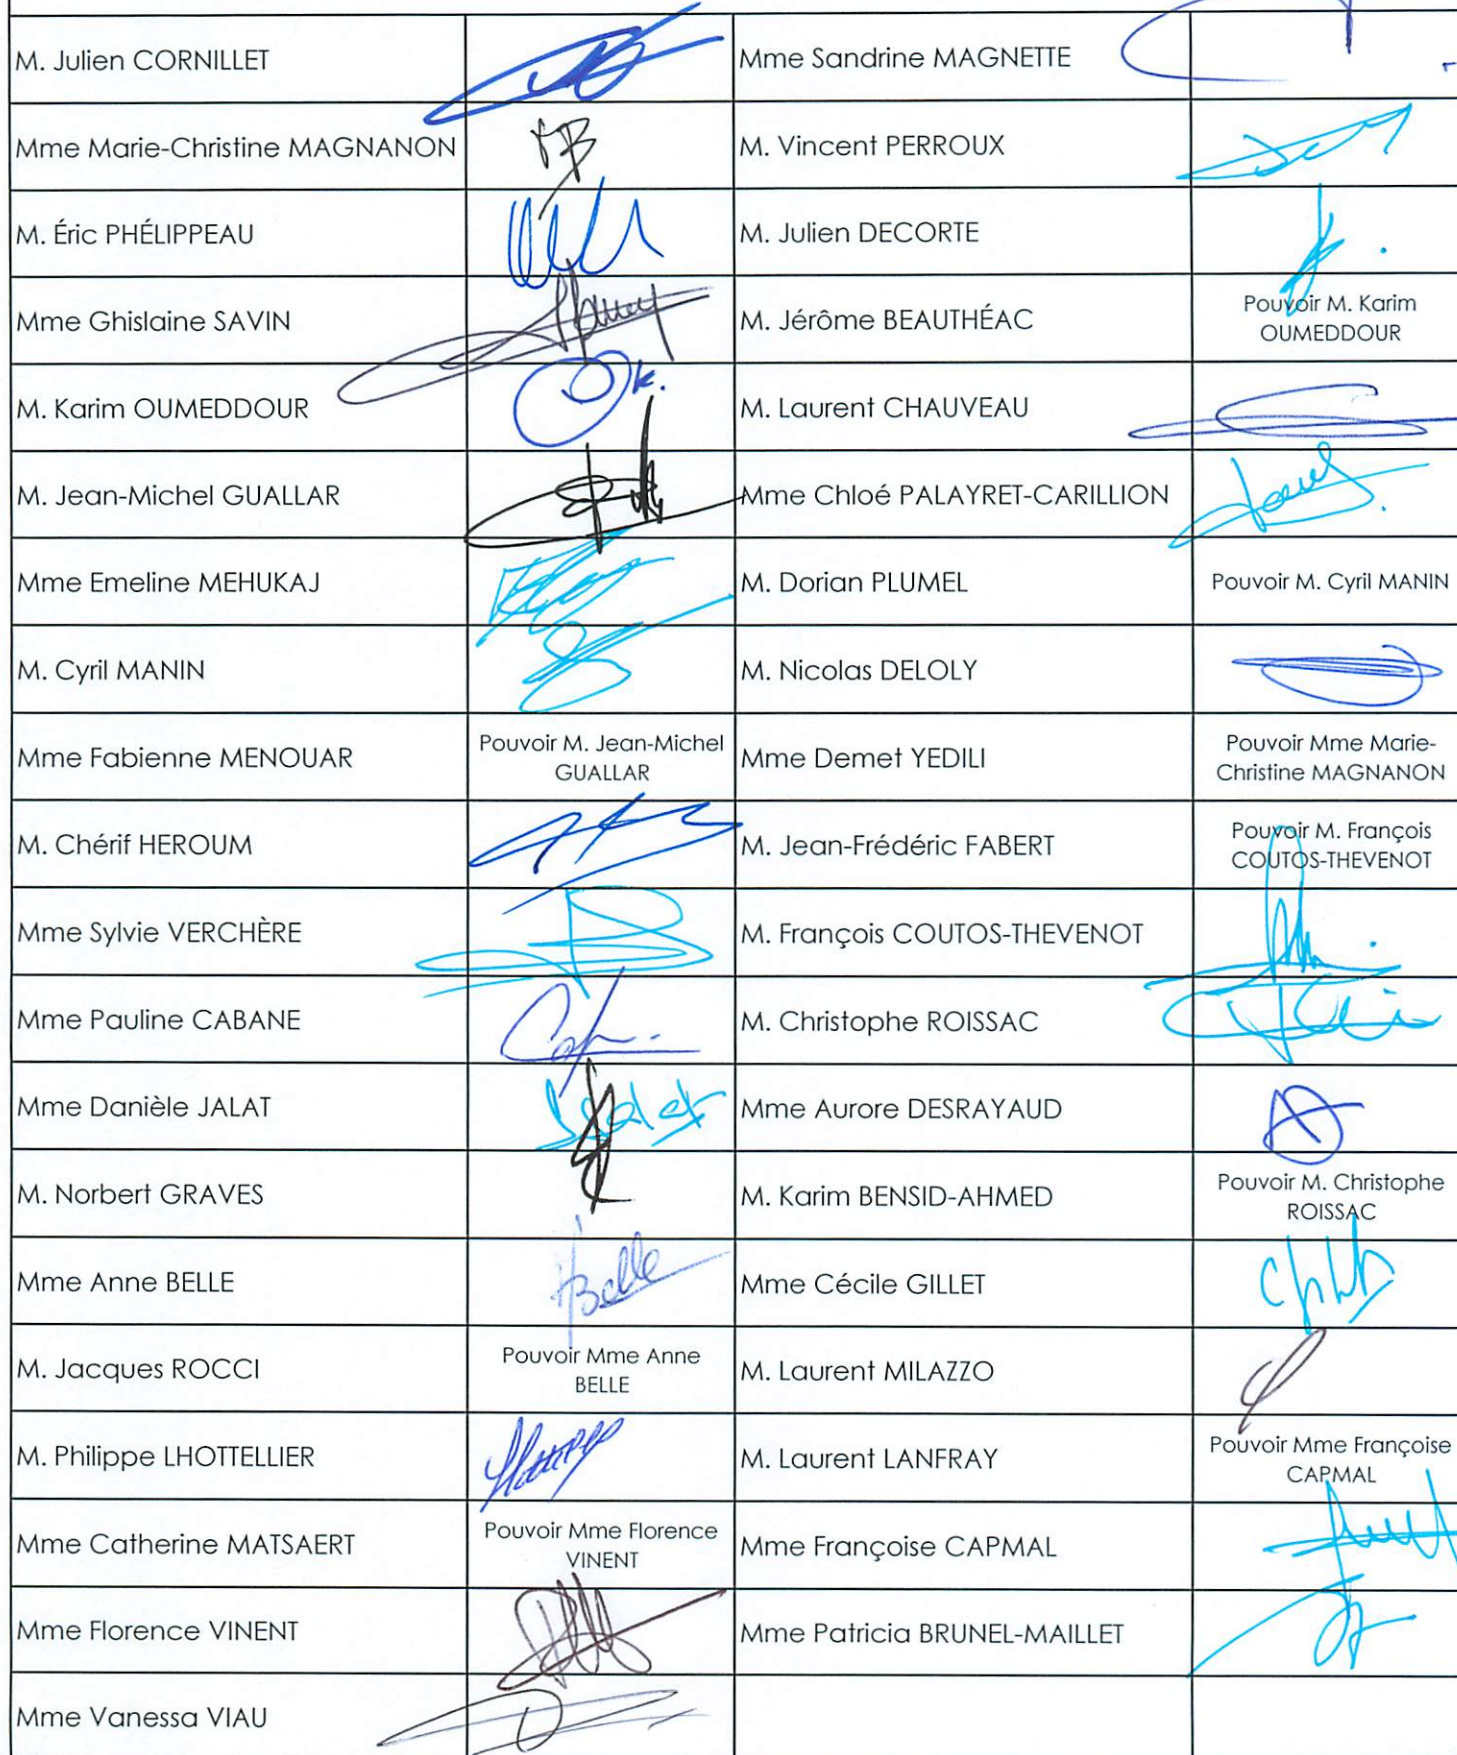 M. Julien CORNILLET
Mme Sandrine MAGNETTE
Mme Marie-Christine MAGNANON
M. Vincent PERROUX
M. Éric PHÉLIPPEAU
M. Julien DECORTE
Mme Ghislaine SAVIN
M. Jérôme BEAUTHÉAC
Pouvoir M. Karim
OUMEDDOUR
M. Karim OUMEDDOUR
M. Laurent CHAUVEAU
M. Jean-Michel GUALLAR
Mme Chloé PALAYRET-CARILLION
Mme Emeline MEHUKAJ
M. Dorian PLUMEL
Pouvoir M. Cyril MANIN
M. Cyril MANIN
M. Nicolas DELOLY
Mme Fabienne MENOUAR
Pouvoir M. Jean-Michel
GUALLAR
Mme Demet YEDILI
Pouvoir Mme Marie-
Christine MAGNANON
M. Chérif HEROUM
M. Jean-Frédéric FABERT
Pouvoir M. François
COUTOS-THEVENOT
Mme Sylvie VERCHÈRE
M. François COUTOS-THEVENOT
Mme Pauline CABANE
M. Christophe ROISSAC
Mme Danièle JALAT
Mme Aurore DESRAYAUD
M. Norbert GRAVES
M. Karim BENSID-AHMED
Pouvoir M. Christophe
ROISSAC
Mme Anne BELLE
Belle
Mme Cécile GILLET
M. Jacques ROCCI
Pouvoir Mme Anne
BELLE
M. Laurent MILAZZO
M. Philippe LHOTTELLIER
M. Laurent LANFRAY
Pouvoir Mme Françoise
CAPMAL
Mme Catherine MATSAERT
Pouvoir Mme Florence
VINENT
Mme Françoise CAPMAL
Mme Florence VINENT
Mme Patricia BRUNEL-MAILLET
Mme Vanessa VIAU